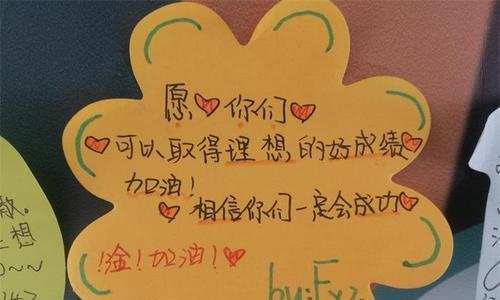 愿♥你们♥
♥可以取得理想的好成绩♥
加酒!
♥相信你们一定会成功
!淦!加酒!♥
by:Fxz
想